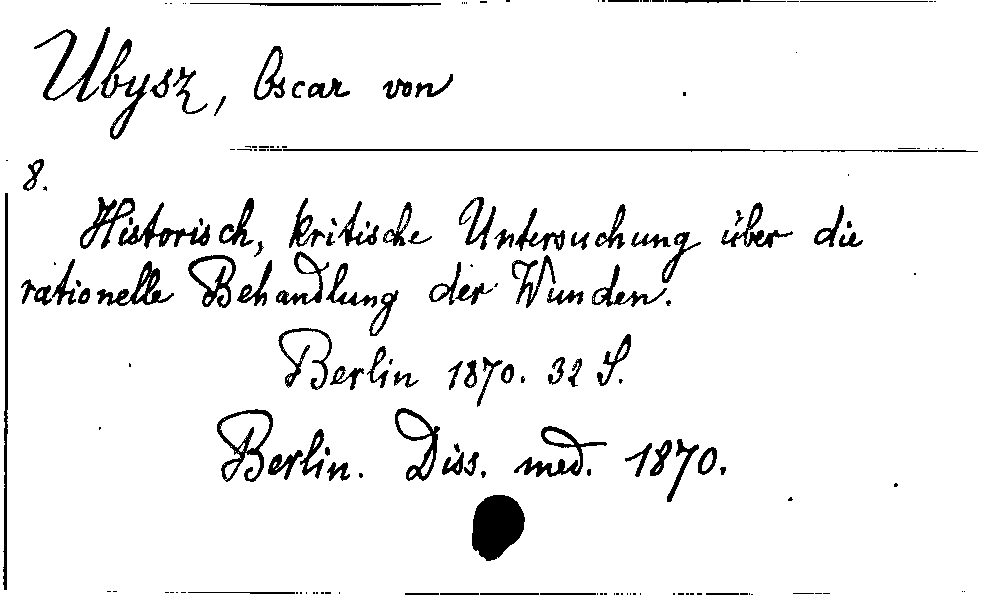 Ubysz, Oscar von
8.
Historisch, kritische Untersuchung über die
rationelle Behandlung der Wunden.
Berlin 1870. 32 S.
Berlin. Diss. med. 1870.